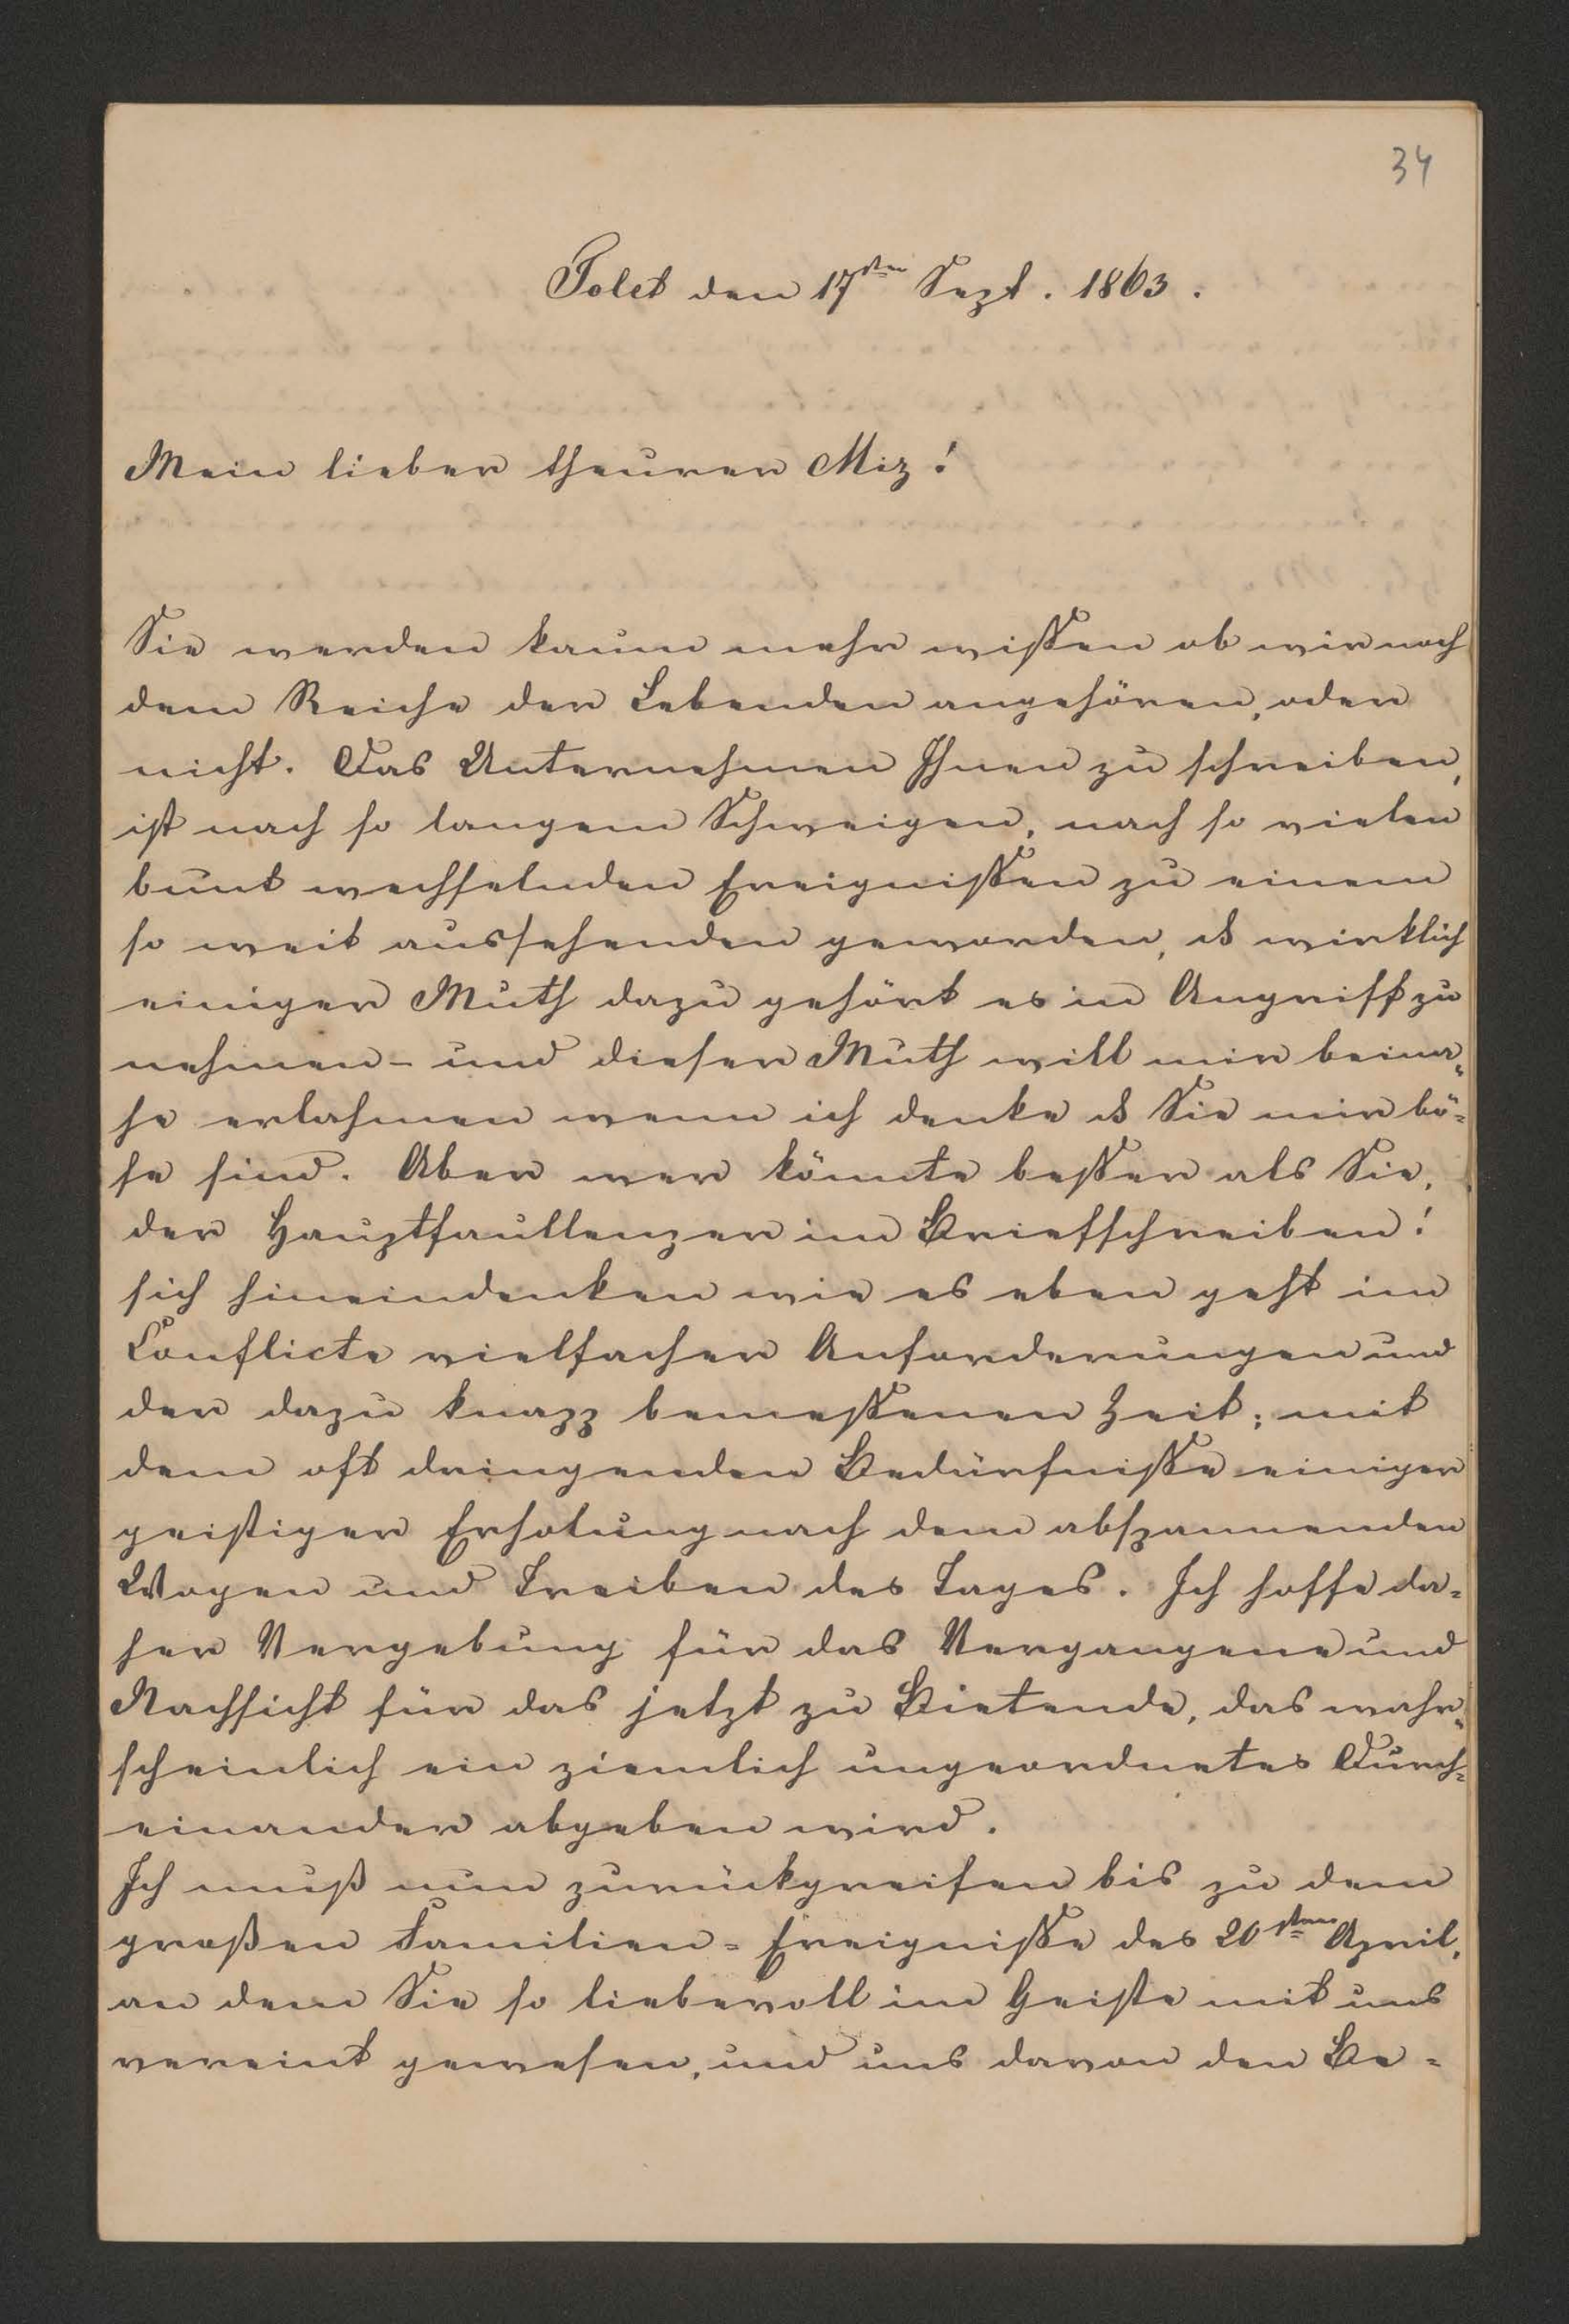 34
Tolet den 17ten Sept. 1863.
Mein lieber theurer Miz!
Sie werden kaum mehr wißen ob wir noch
dem Reiche der Lebenden angehören, oder
nicht. Das Unternehmen Ihnen zu schreiben,
ist nach so langem Schweigen, nach so vielen
bunt wechselnden Ereignißen zu einem
so weit aussehenden geworden, ds wirklich
einiger Muth dazu gehört es in Angriff zu
nehmen - und dieser Muth will mir beina„
he erlahmen wenn ich denke ds Sie mir bö-
se sind. Aber wer könnte beßer als Sie,
der Hauptfaullenzer im Briefschreiben!
sich hineindenken wie es eben geht im
Conflicte vielfacher Anforderungen und
der dazu knapp bemeßenen Zeit; mit
dem oft dringenden Bedürfniße einiger
geistiger Erholung nach dem abspannenden
Wogen und Treiben des Tages. Ich hoffe da-
her Vergebung für das Vergangene und
Nachsicht für das jetzt zu Bietende, das wahr„
scheinlich ein ziemlich ungeordnetes Durch-
einander abgeben wird.
Ich muß nun zurückgreifen bis zu dem
großen Familien-Ereigniße des 20sten April,
an dem Sie so liebevoll im Geiste mit uns
vereint gewesen, und uns davon den Be-